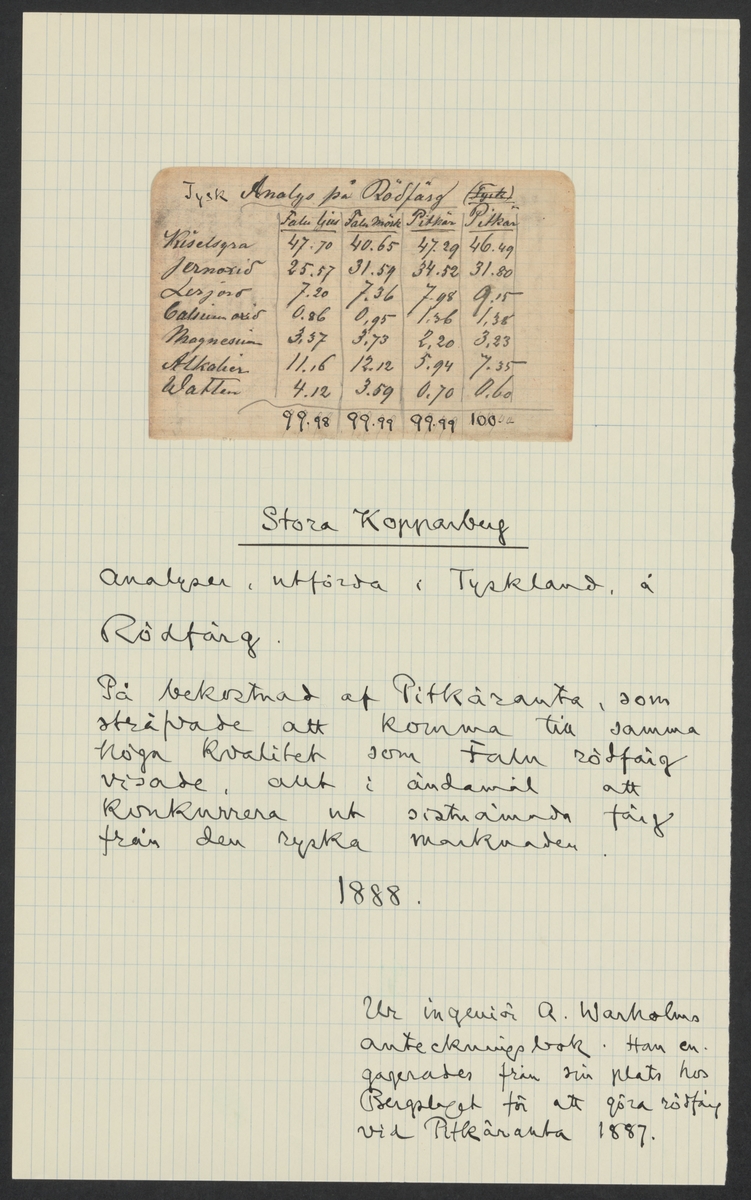 Tysk Analys på Rödfärg (Tysk)
Falu ljus Falu Mörk Pitkär Pitkär
Kiselsyra 47.70 40.65 47.29 46.49
Jernoxid 25.57 31.59 34.52 31.80
Lerjord 7.20 7.36 7.98 9.15
Calcium oxid 0.86 0.95 1.36 1.38
Magnesium 3.37 3.73 2.20 3.23
Alkalier 11.16 12.12 5.94 7.35
Watten 4.12 3.59 0.70 0.60
99.98 99.99 99.99 100.00
Stora Kopparberg
Analyser, utförda i Tyskland, å
Rödfärg.
På bekostnad af Pitkäranta, som
sträfvade att komma till samma
höga kvalitet som Falu rödfärg
visade, allt i ändamål att
konkurrera ut sistnämnda färg
från den ryska marknaden.
1888.
Ur ingeniör A. Warholms
anteckningsbok. Han en-
gagerades från sin plats hos
Bergslaget för att göra rödfärg
vid Pitkäranta 1887.